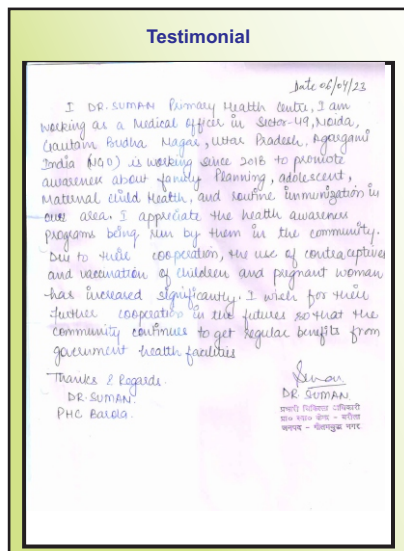 Testimonial
Date 06/04/23
I DR.SUMAN Primary Health Centre, I am
working as a Medical officer in Sector-49, Noida,
Gautam Budha Nagar, Uttar Pradesh. Agragami
India (NGO) is working since 2018 to promote
awareness about family Planning, adolescent,
Maternal child Health, and routine immunization in
our area. I appreciate the health awareness
programs being run by them in the community.
Due to their cooperation, the use of contraceptives
and vaccination of children and pregnant woman
has increased significantly. I wish for their
further cooperation in the futures so that the
community continues to get regular benefits from
government health facilities
Thanks & Regards.
DR.SUMAN.
PHC Barola.
Suman
DR. SUMAN
प्रभारी चिकित्सा अधिकारी
प्रा० स्वा० केन्द्र - बरौला
जनपद - गौतमबुद्ध नगर